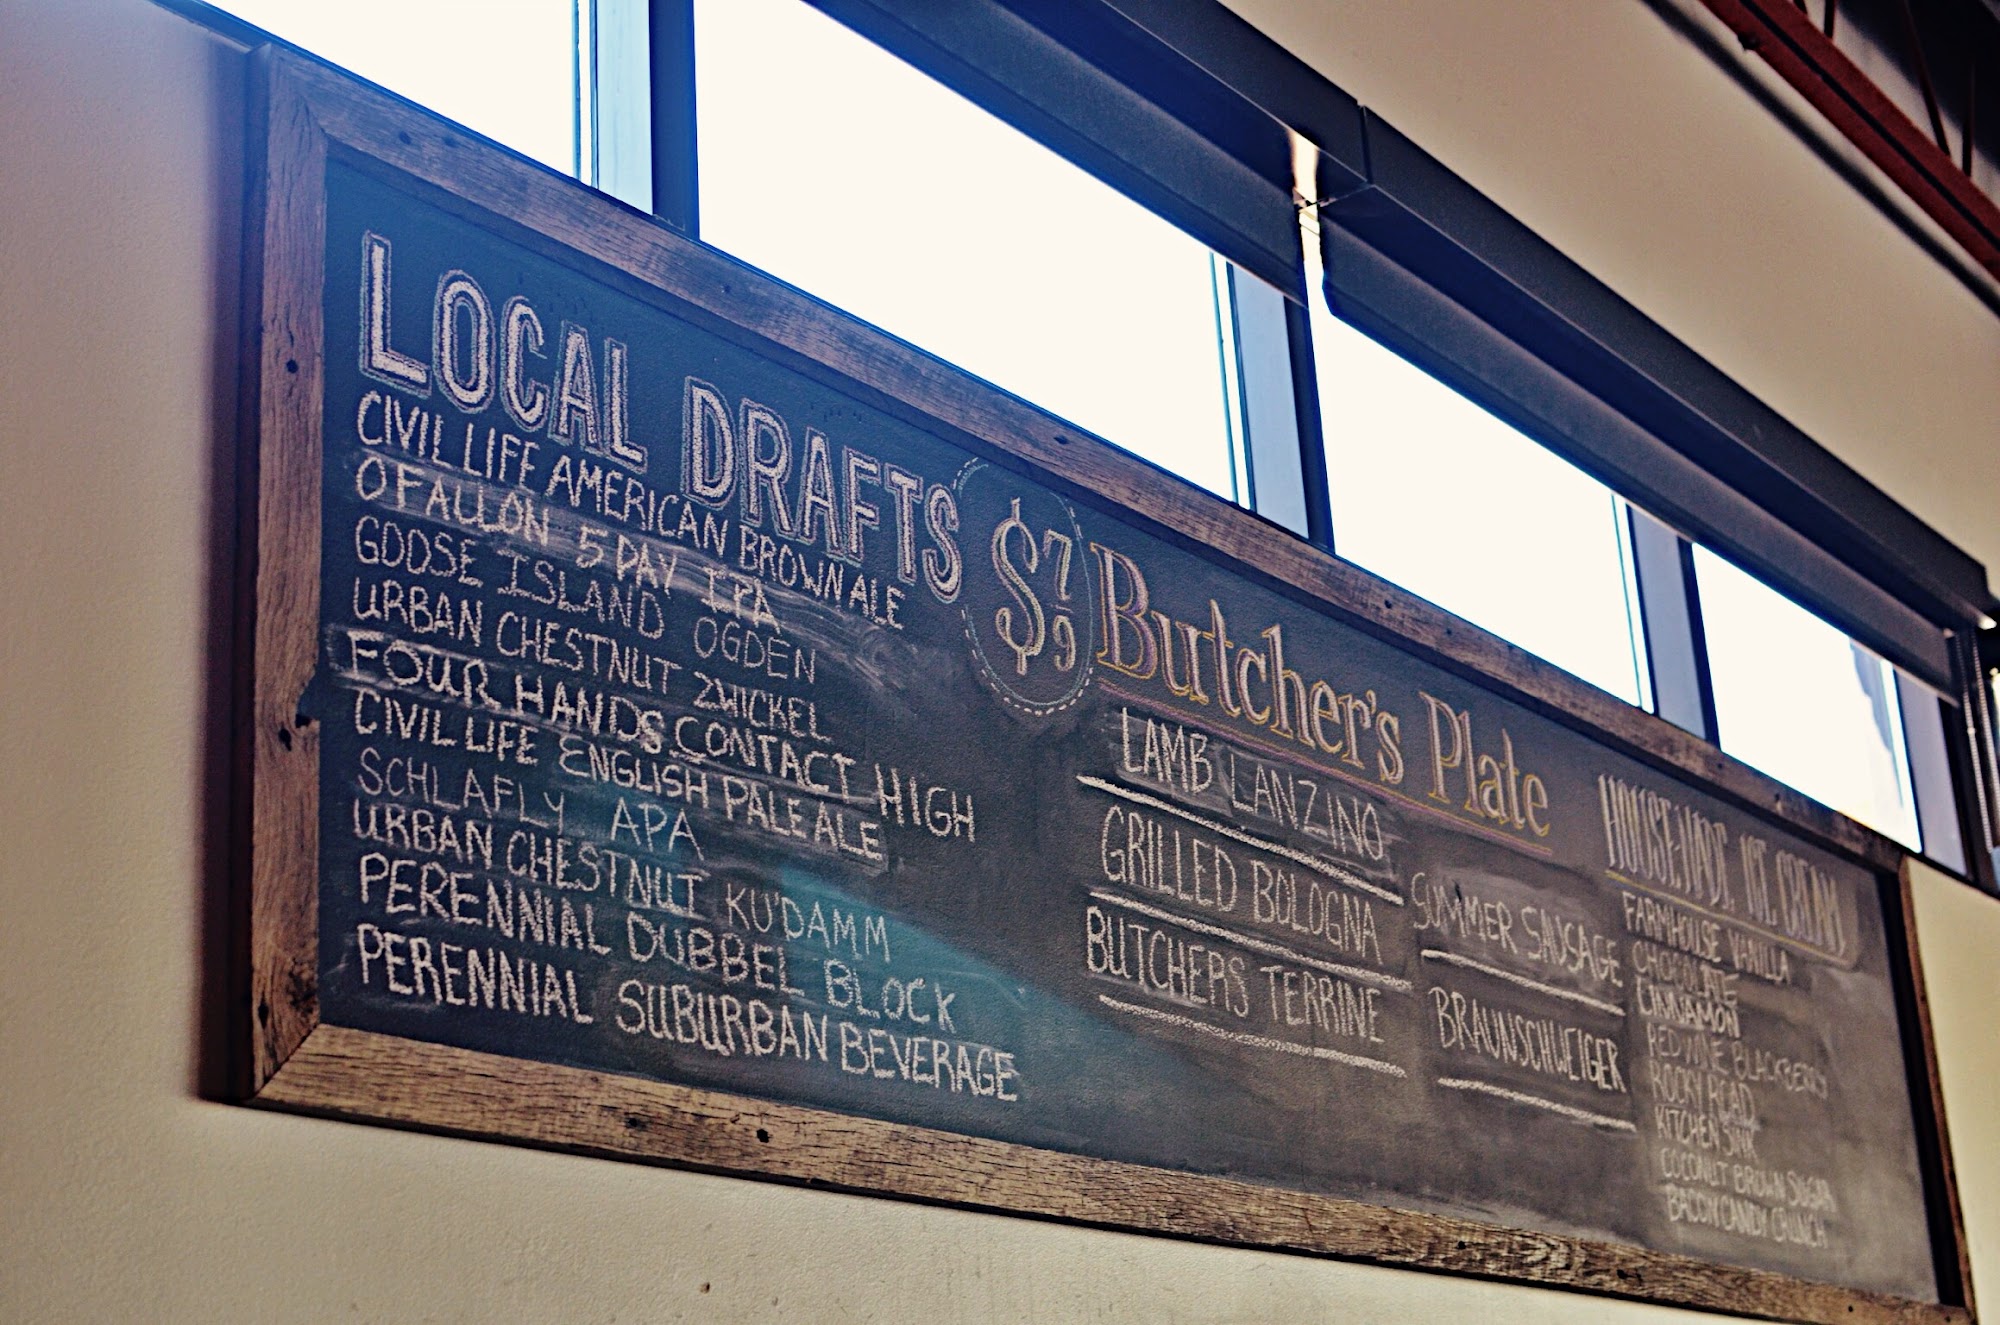 LOCAL DRAFTS
CIVIL LIFE AMERICAN BROWN ALE
O FALLON 5 DAY IPA
GOOSE ISLAND OGDEN
URBAN CHESTNUT ZWICKEL
FOUR HANDS CONTACT HIGH
CIVIL LIFE ENGLISH PALE ALE
SCHLAFLY APA
URBAN CHESTNUT KU'DAMM
PERENNIAL DUBBEL BLOCK
PERENNIAL SUBURBAN BEVERAGE
$7/9
Butcher's Plate
LAMB LANZINO
GRILLED BOLOGNA
BUTCHERS TERRINE
SUMMER SAUSAGE
BRAUNSCHWEIGER
HOUSE-MADE ICE CREAM
FARMHOUSE VANILLA
CHOCOLATE
CINNAMON
RED WINE BLACKBERRY
ROCKY ROAD
KITCHEN SINK
COCONUT BROWN SUGAR
BACON CANDY CRUNCH